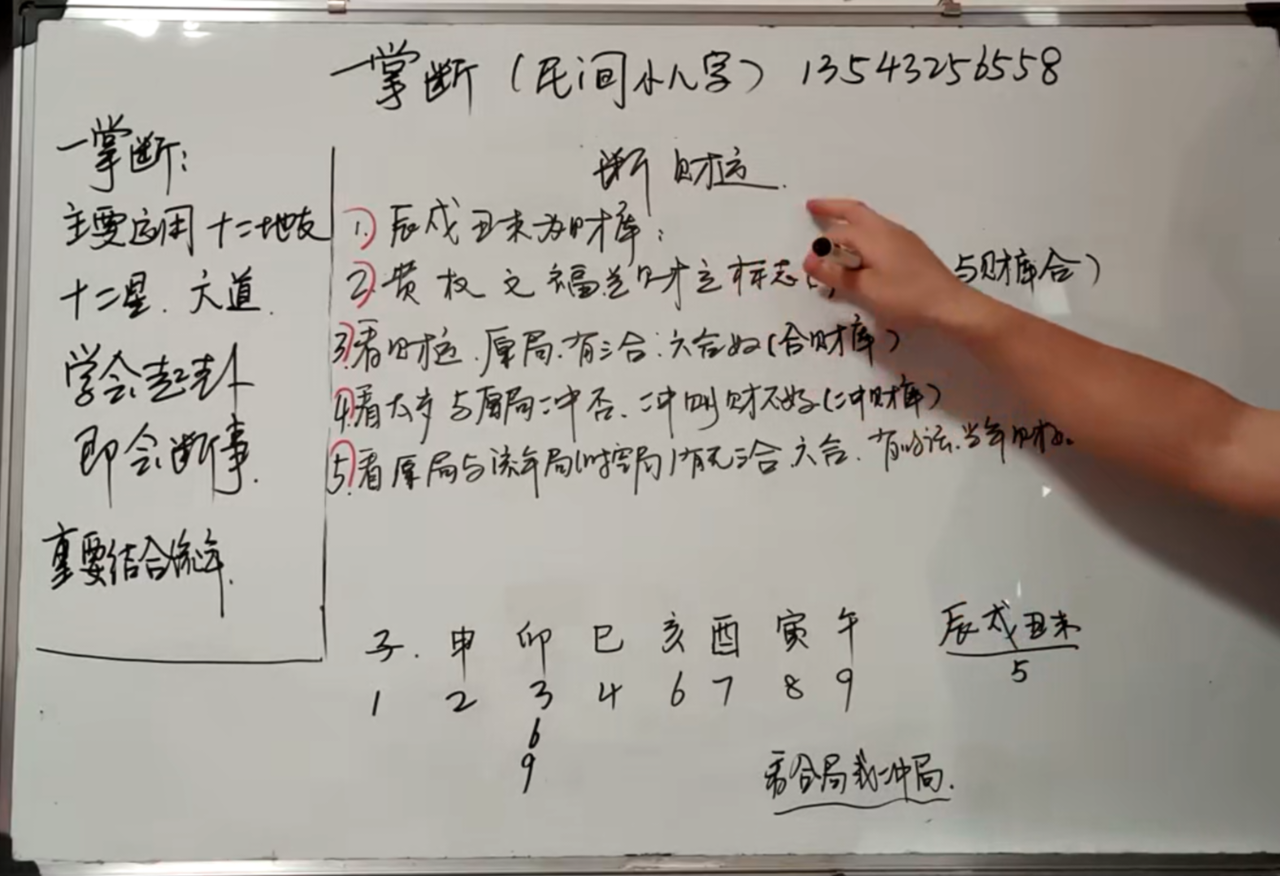 一掌断（民间小八字）13543256558
一掌断：
主要应用十二地支
十二星.六道.
学会起卦
即会断事.
重要结合流年.
断财运.
1.辰戌丑未为财库：
2.贵权文福是财立标志（ 与财库合）
3.看财运.原局.有三合.六合好（合财库）
4.看太岁与原局冲否.冲则财不好（冲财库）
5.看原局与流年局（时空局）有无三合六合.有的话.当年财好。
子.申 卯 巳 亥 酉 寅 午
1 2 3 4 6 7 8 9
6
9
辰戌丑未
5
看合局或冲局.